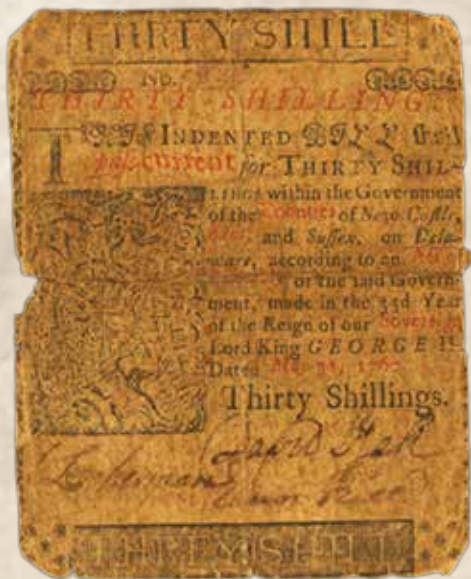 THIRTY SHILL
No.
THIRTY SHILLING
THIS INDENTED BILL shall
pass current for THIRTY SHIL-
LINGS within the Government
of the Counties of New-Castle,
Kent and Sussex, on Dela-
ware, according to an
of the said Govern-
ment, made in the 33d Year
of the Reign of our Sovereign
Lord King GEORGE II.
Dated May 31, 1760
Thirty Shillings.
David Hall
THIRTY SHILL